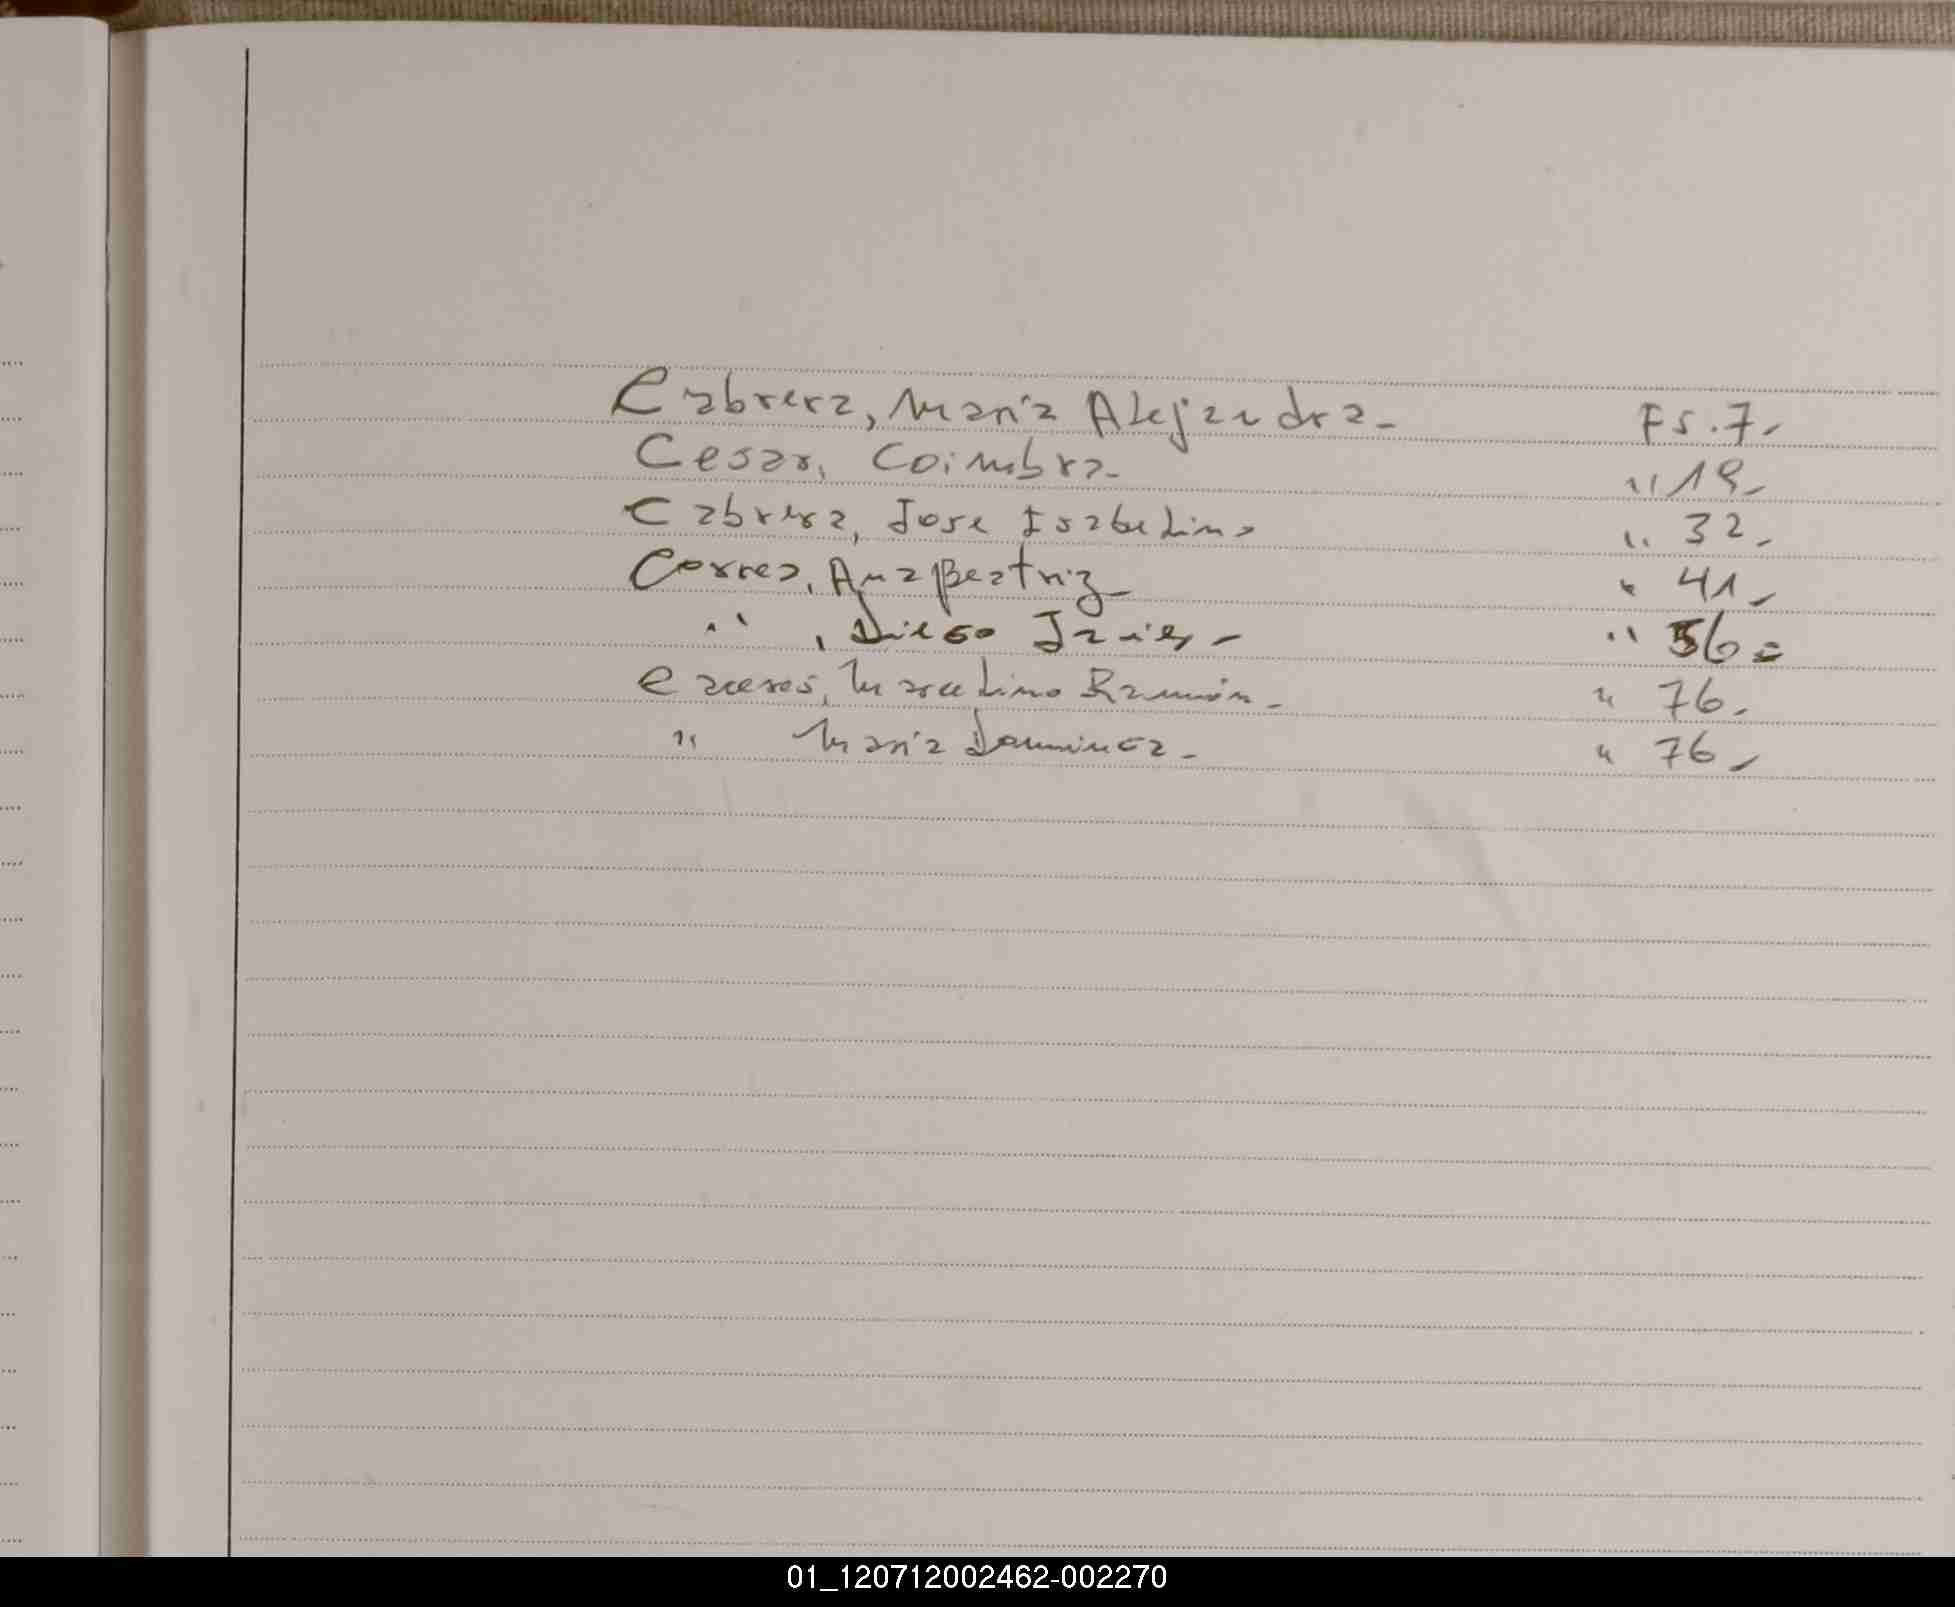 Cabrera, Maria Alejandra- Fs. 7.-
Cesar, Coimbra- " 19.-
Cabrera, Jose Isabelino " 32.-
Correa, Ana Beatriz- " 41.-
" , Diego Javier- " 56=
Caceres, Marcelino Ramón.- " 76.-
" Maria Dominica.- " 76.-
01_120712002462-002270